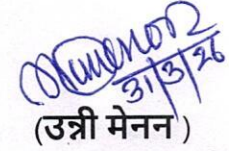 31/3/26
(उन्नी मेनन)